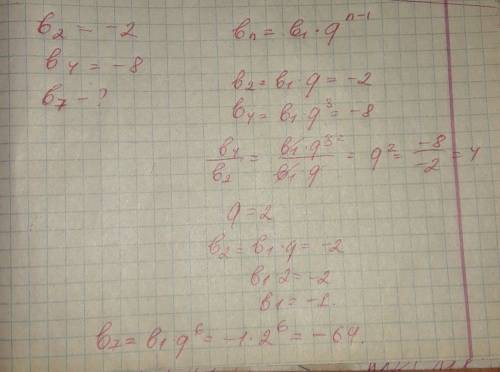 b₂ = -2
b₄ = -8
b₇ - ?
bₙ = b₁ · qⁿ⁻¹
b₂ = b₁ · q = -2
b₄ = b₁ · q³ = -8
b₄/b₂ = b₁ · q³/b₁ · q = q² = -8/-2 = 4
q = 2
b₂ = b₁ · q = -2
b₁ · 2 = -2
b₁ = -1.
b₇ = b₁ q⁶ = -1 · 2⁶ = -64.